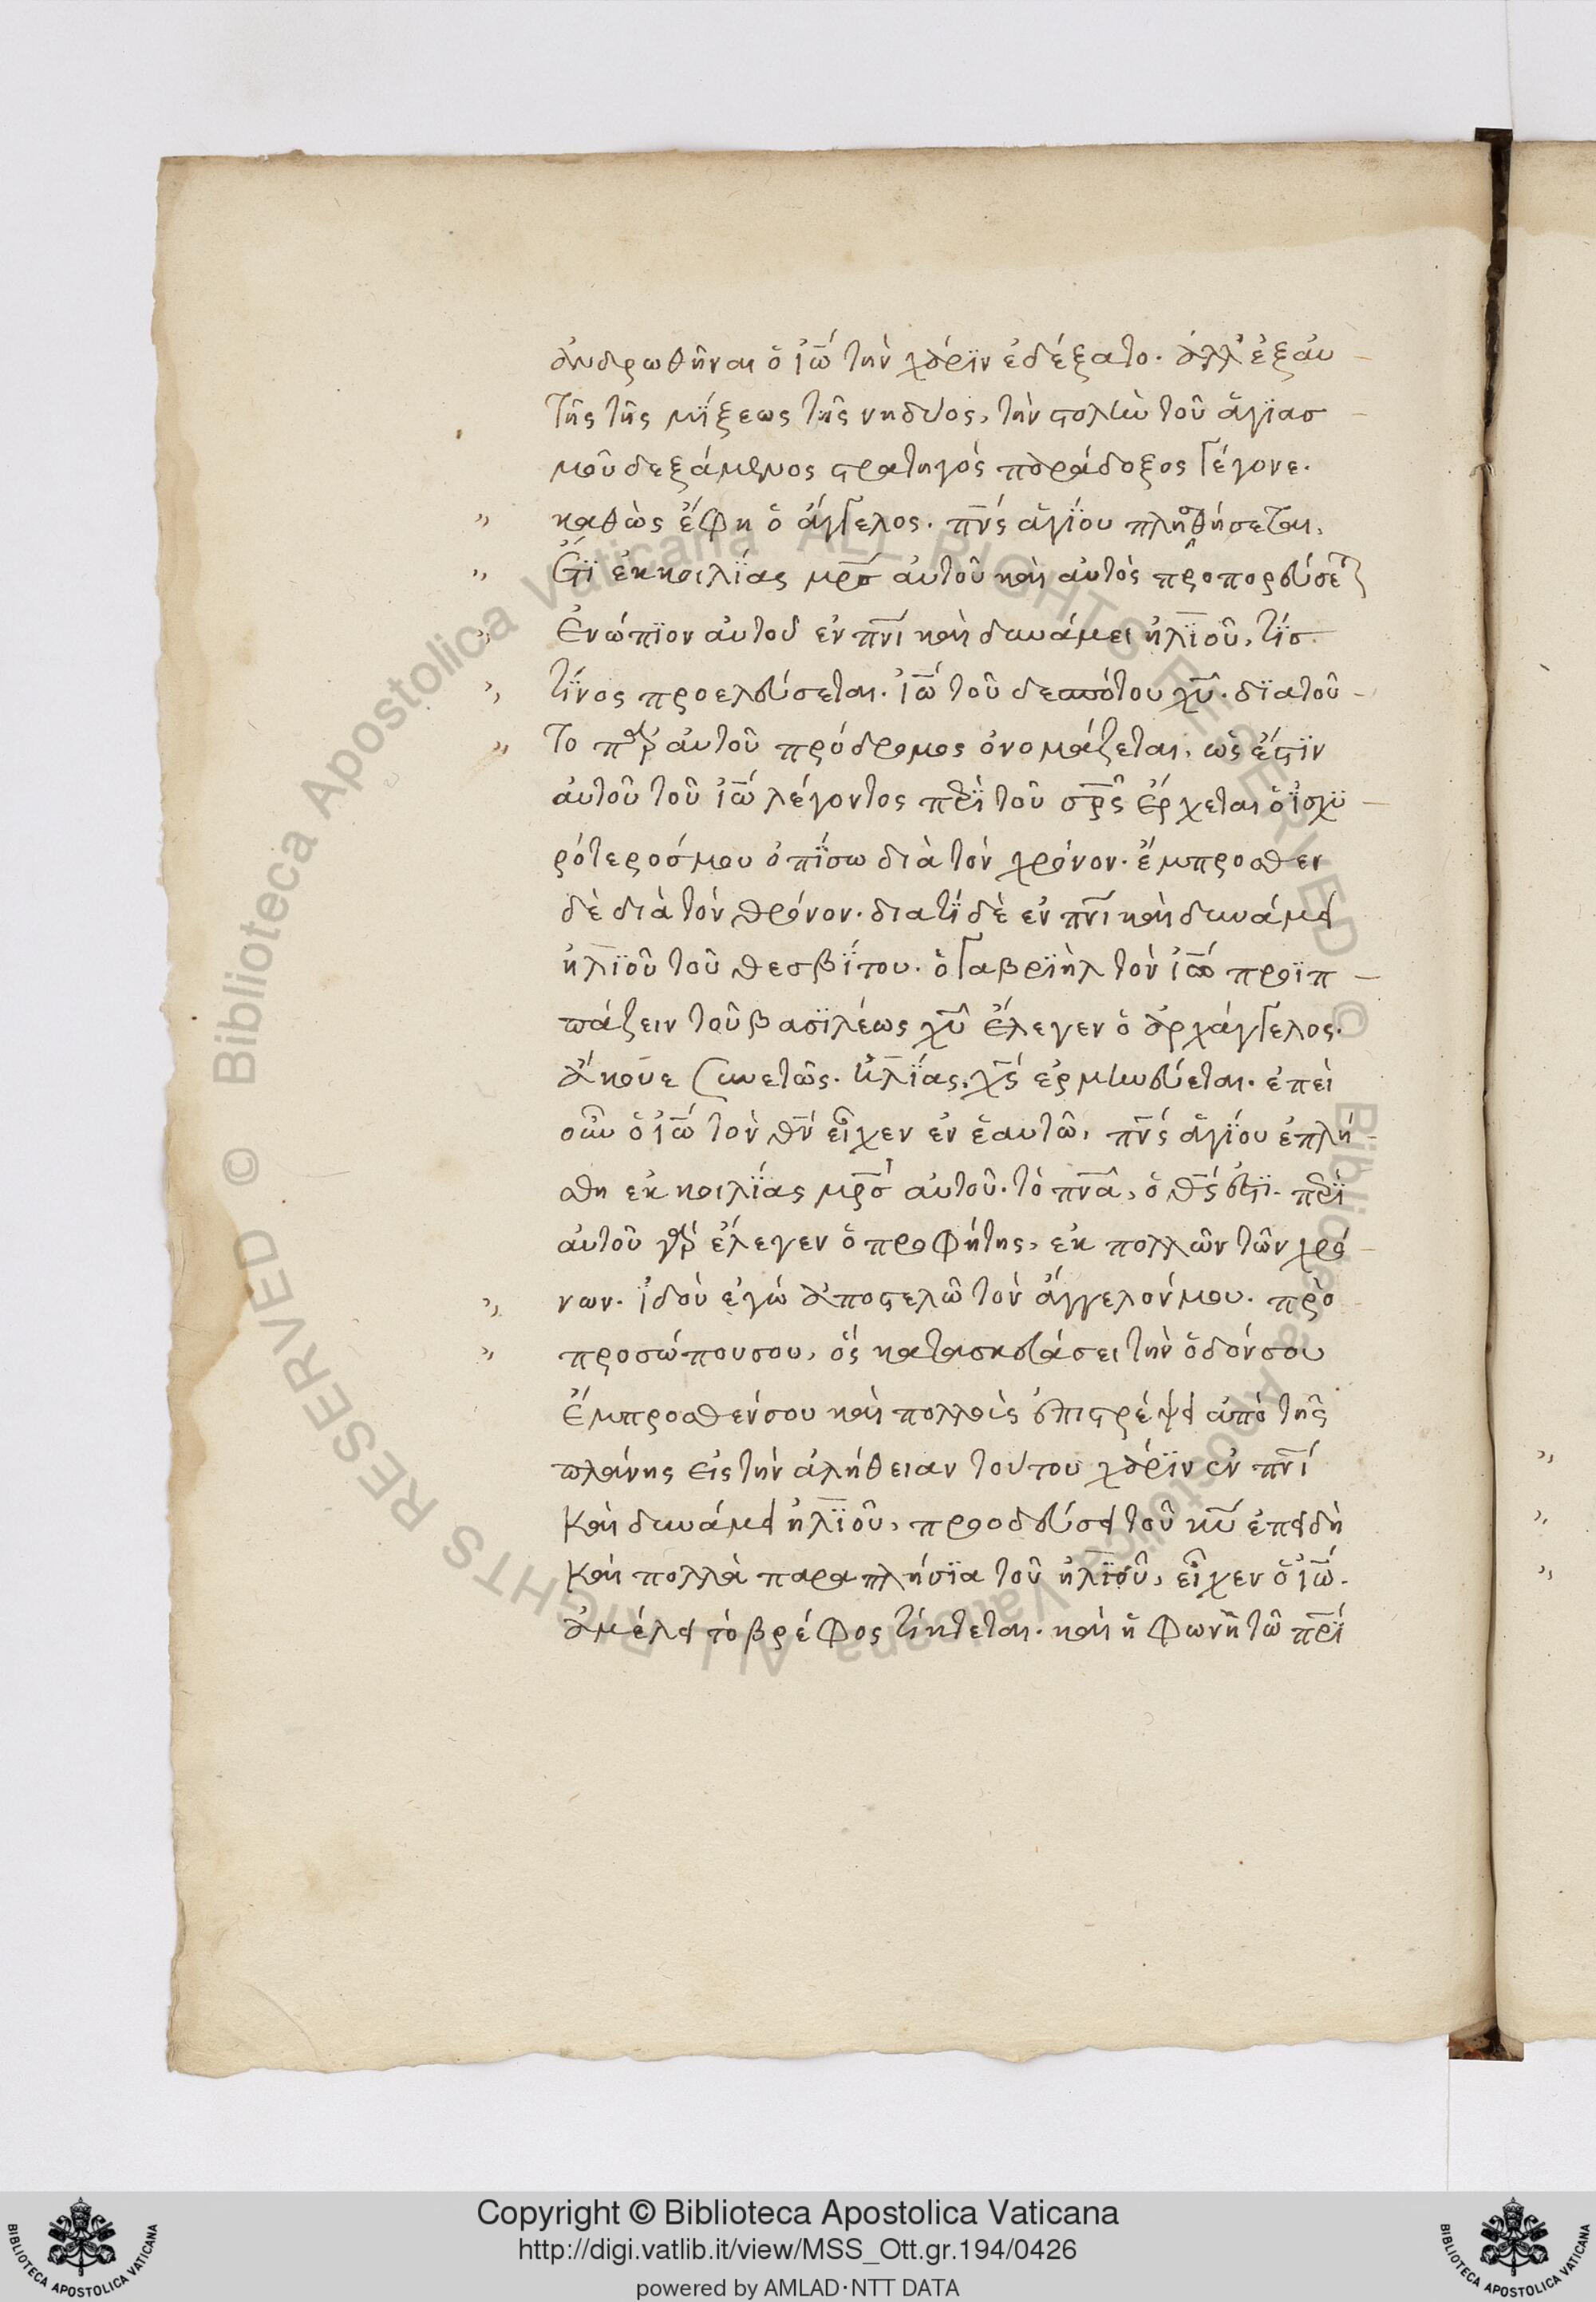 ἀνδρωθῆναι ὁ ἰω̅ τὴν χάρϊν ἐδέξατο. ἀλλ' ἐξ αὐ
τῆς τῆς μΐξεως τῆς νηδύος, τὴν στολὴν τοῦ ἁγϊασ
μοῦ δεξάμενος στρατηγὸς παράδοξος γέγονε.
καθὼς ἔφη ὁ ἄγγελος. πν̅ς ἁγΐου πλησθήσεται,
ἔτϊ ἐκ κοιλΐας μρ̅σ αὐτοῦ καὶ αὐτὸς προπορεύσεται
ἐνώπϊον αὐτοῦ ἐν πν̅ι καὶ δυνάμει ἠλϊοῦ, τΐσ
τΐνος προελεύσεται. ἰω̅ τοῦ δεσπότου χυ̅. δϊατοῦ
το παρ' αὐτοῦ πρόδρομος ὀνομάζεται, ὥς ἐστϊν
αὐτοῦ τοῦ ἰω̅ λέγοντος περϊ τοῦ σρ̅ς ἔρχεται ὁ ἰσχϋ
ρότεροσμου ὀπΐσω διὰ τὸν χρόνον. ἔμπροσθεν
δὲ διὰ τὸν θρόνον. διατΐ δὲ ἐν πν̅ι καὶ δυνάμει
ἠλϊοῦ τοῦ θεσβΐτου. ὁ γαβρϊὴλ τὸν ἰω̅ προϊπ
πάζειν τοῦ βασϊλέως χυ̅ ἔλεγεν ὁ ἀρχάγγελος.
ἄκουε συνετῶς. ἠλΐας, χς̅ ἑρμηνεύεται. ἐπεὶ
οὖν ὁ ἰω̅ τὸν θν̅ εἶχεν ἐν ἑαυτῶ, πν̅ς ἁγΐου ἐπλή
σθη ἐκ κοιλΐας μρ̅σ αὐτοῦ. τὸ πν̅α, ὁ θς̅ ἐστϊ. περϊ
αὐτοῦ γὰρ ἔλεγεν ὁ προφήτης, ἐκ πολλῶν τῶν χρό
νων. ἰδοὺ ἐγὼ ἀποστελῶ τὸν ἄγγελόνμου. πρὸ
προσώπουσου, ὅς κατασκευάσει τὴν ὁδόνσου
ἔμπροσθένσου καὶ πολλοὶς ἐπιστρέψει ἀπὸ τῆς
πλάνης εἰς τὴν ἀλήθειαν τούτου χάρϊν ἐν πν̅ι
καὶ δυνάμει ἠλϊοῦ, προοδεύσει τοῦ κυ̅ ἐπειδὴ
καὶ πολλὰ παραπλήσϊα τοῦ ἠλϊοῦ, εἶχεν ὁ ἰω̅.
ἀμέλει τὸ βρέφος τίκτεται. καὶ ἡ φωνὴ τῶ πρ̅ι
Copyright © Biblioteca Apostolica Vaticana
http://digi.vatlib.it/view/MSS_Ott.gr.194/0426
powered by AMLAD·NTT DATA